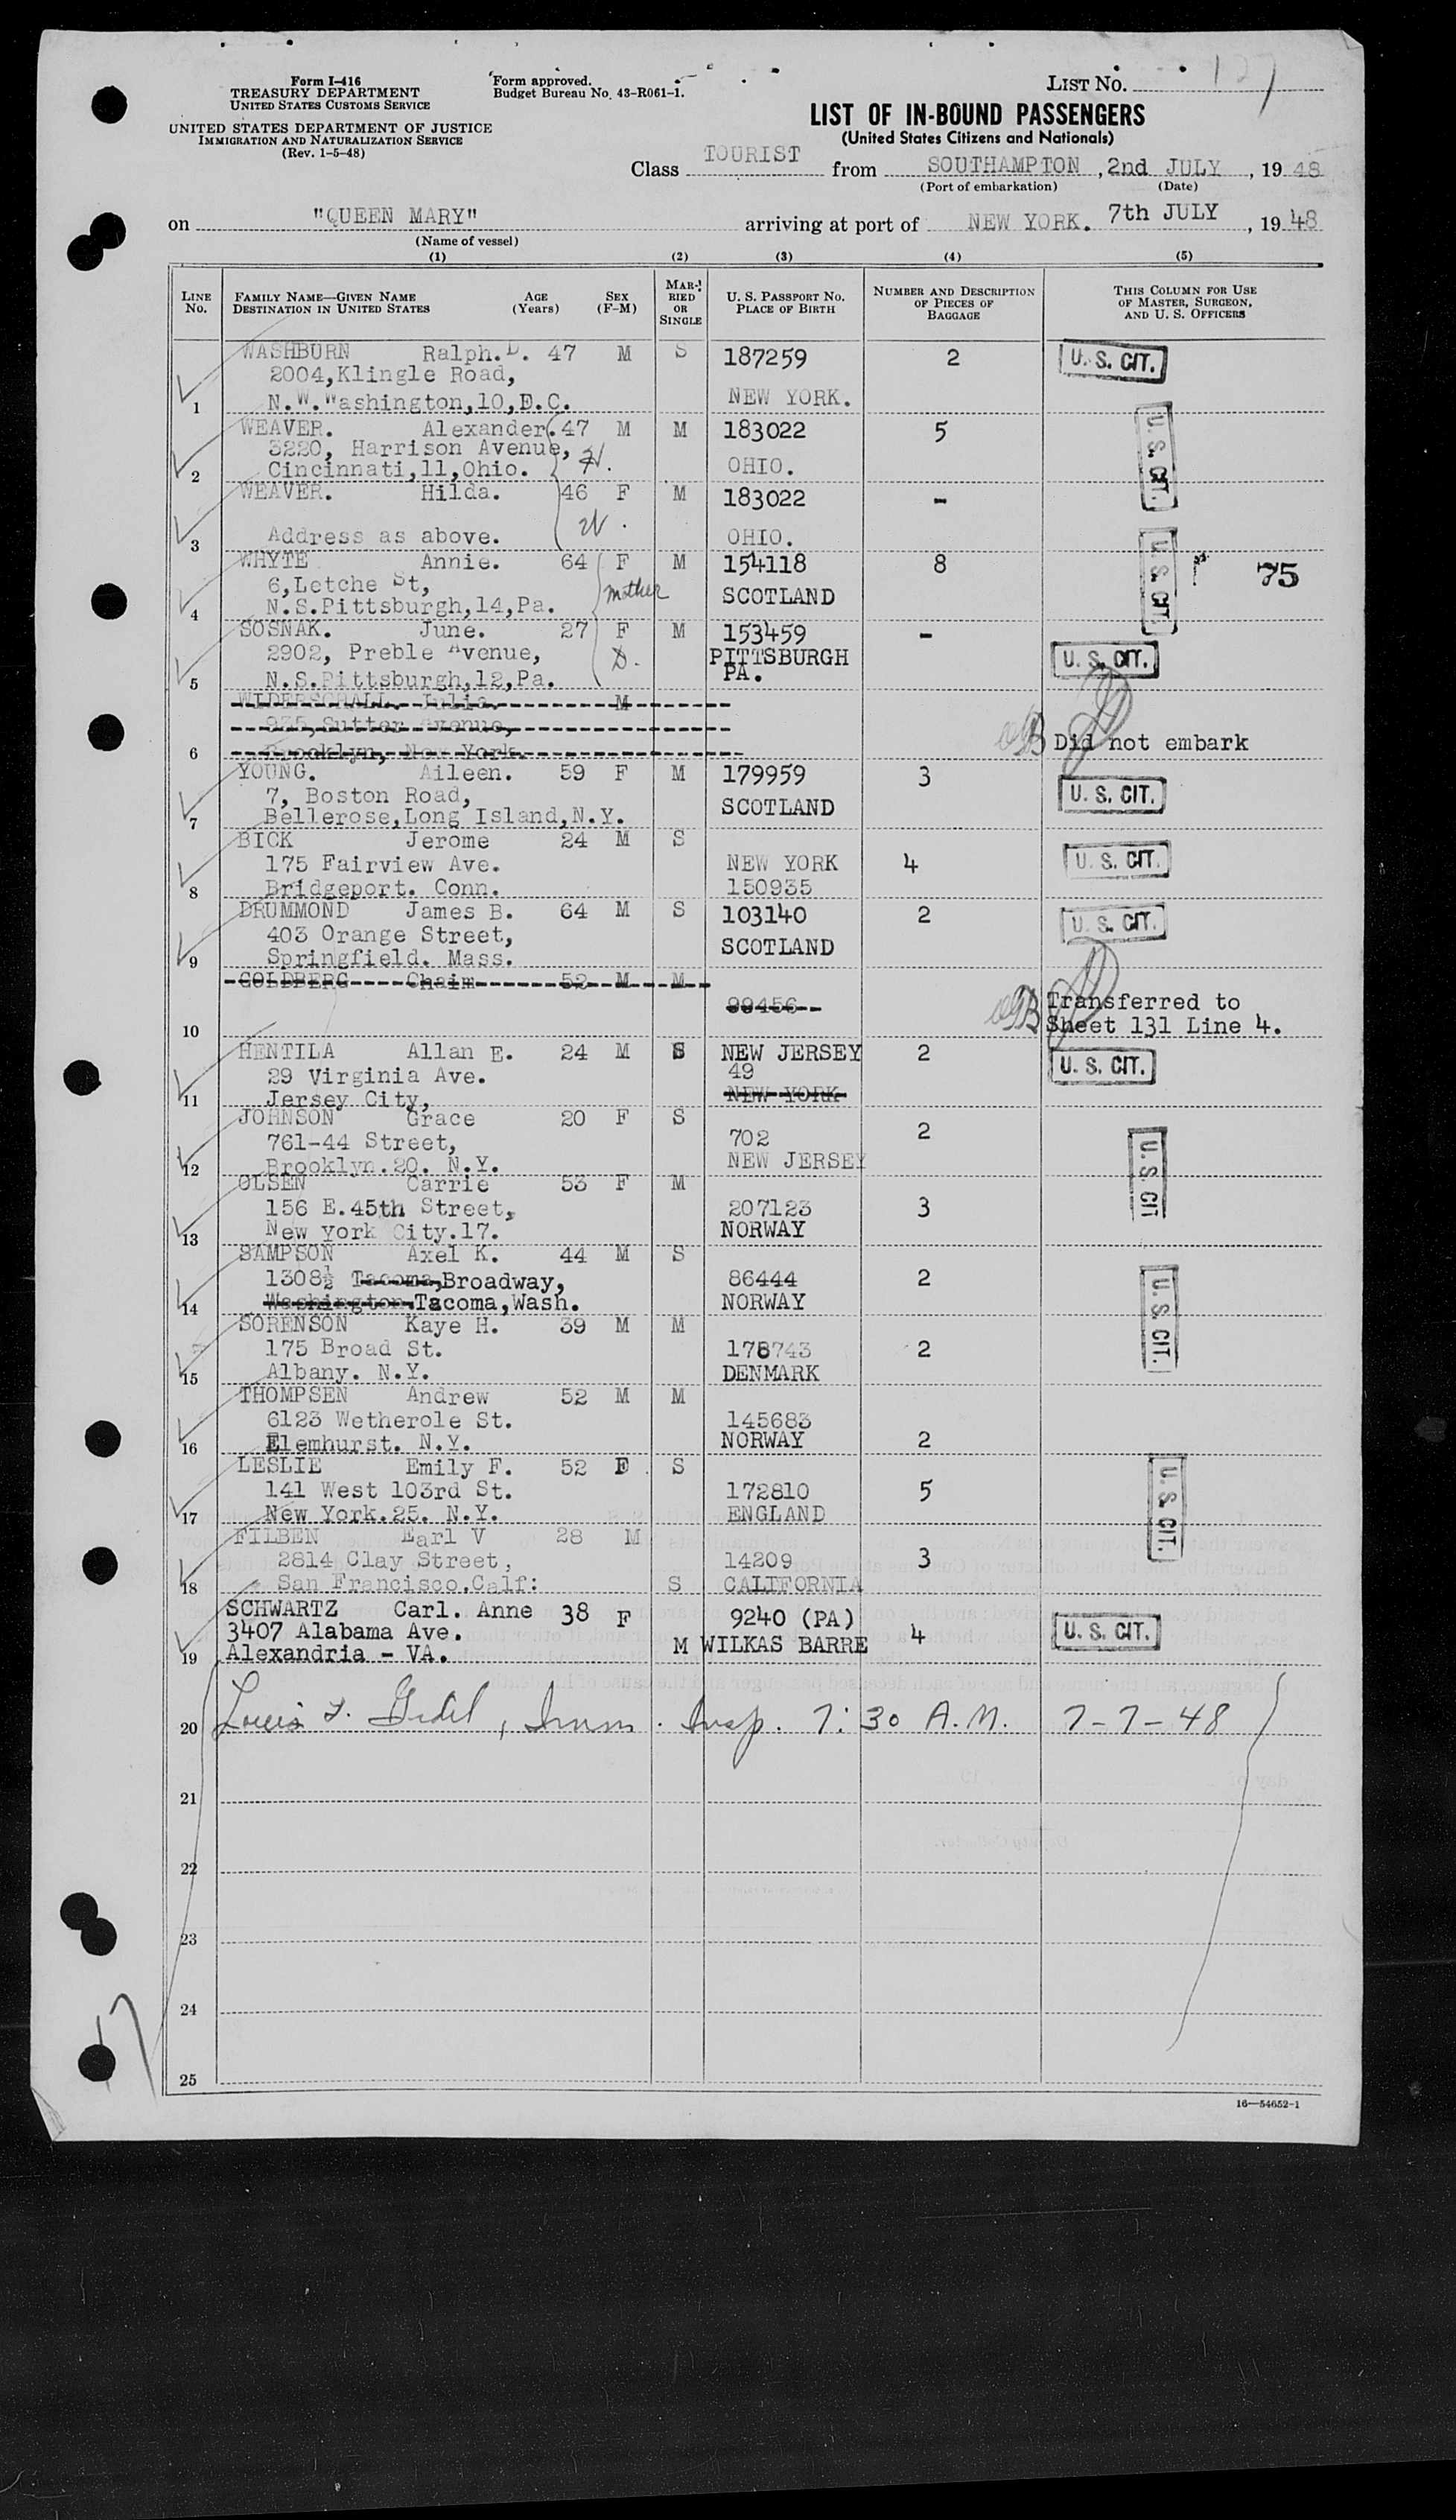 Form I-416
TREASURY DEPARTMENT
UNITED STATES CUSTOMS SERVICE
UNITED STATES DEPARTMENT OF JUSTICE
IMMIGRATION AND NATURALIZATION SERVICE
(Rev. 1-5-48)
Form approved.
Budget Bureau No. 43-R061-1.
LIST NO. 127
LIST OF IN-BOUND PASSENGERS
(United States Citizens and Nationals)
Class TOURIST from SOUTHAMPTON, 2nd JULY, 1948
(Port of embarkation) (Date)
on "QUEEN MARY" arriving at port of NEW YORK. 7th JULY, 1948
(Name of vessel)
(1) (2) (3) (4) (5)
LINE NO. FAMILY NAME—GIVEN NAME DESTINATION IN UNITED STATES AGE (Years) SEX (F-M) MARRIED OR SINGLE U. S. PASSPORT NO. PLACE OF BIRTH NUMBER AND DESCRIPTION OF PIECES OF BAGGAGE THIS COLUMN FOR USE OF MASTER, SURGEON, AND U. S. OFFICERS
WASHBURN Ralph.D. 47 M S 187259 2 U. S. CIT.
2004,Klingle Road,
1 N.W.Washington,10,D.C. NEW YORK.
WEAVER. Alexander. 47 M M 183022 5 U. S. CIT.
3220, Harrison Avenue, H.
2 Cincinnati,11,Ohio. OHIO.
WEAVER. Hilda. 46 F M 183022 -
W.
3 Address as above. OHIO.
WHYTE Annie. 64 F M 154118 8 U. S. CIT. 75
6,Letche St, mother SCOTLAND
4 N.S.Pittsburgh,14,Pa.
SOSNAK. June. 27 F M 153459 -
2902, Preble Avenue, D. PITTSBURGH U. S. CIT.
5 N.S.Pittsburgh,12,Pa. PA.
WIDERSCHALL. Julia. M
935,Sutter Avenue,
6 Brooklyn, New York. Did not embark
YOUNG. Aileen. 59 F M 179959 3 U. S. CIT.
7, Boston Road, SCOTLAND
7 Bellerose,Long Island,N.Y.
BICK Jerome 24 M S
175 Fairview Ave. NEW YORK 4 U. S. CIT.
8 Bridgeport. Conn. 150935
DRUMMOND James B. 64 M S 103140 2 U. S. CIT.
403 Orange Street, SCOTLAND
9 Springfield. Mass.
GOLDBERG Chaim 52 M M
99456 Transferred to
10 Sheet 131 Line 4.
HENTILA Allan E. 24 M S NEW JERSEY 2 U. S. CIT.
29 Virginia Ave. 49
11 Jersey City, NEW YORK
JOHNSON Grace 20 F S
761-44 Street, 702 2 U. S. CIT
12 Brooklyn.20. N.Y. NEW JERSEY
OLSEN Carrie 53 F M
156 E.45th Street, 207123 3
13 New York City.17. NORWAY
SAMPSON Axel K. 44 M S
1308½ Tacoma,Broadway, 86444 2 U. S. CIT.
14 Washington.Tacoma,Wash. NORWAY
SORENSON Kaye H. 39 M M
175 Broad St. 178743 2
15 Albany. N.Y. DENMARK
THOMPSEN Andrew 52 M M
6123 Wetherole St. 145683
16 Elemhurst. N.Y. NORWAY 2
LESLIE Emily F. 52 F. S
141 West 103rd St. 172810 5 U. S. CIT.
17 New York.25. N.Y. ENGLAND
FILBEN Earl V 28 M
2814 Clay Street, 14209 3
18 San Francisco.Calf: S CALIFORNIA
SCHWARTZ Carl. Anne 38 F 9240 (PA)
3407 Alabama Ave. M WILKAS BARRE 4 U. S. CIT.
19 Alexandria - VA.
20 Louis, Imm. Insp. 7:30 A.M. 7-7-48
21
22
23
24
25
17
16—54652-1